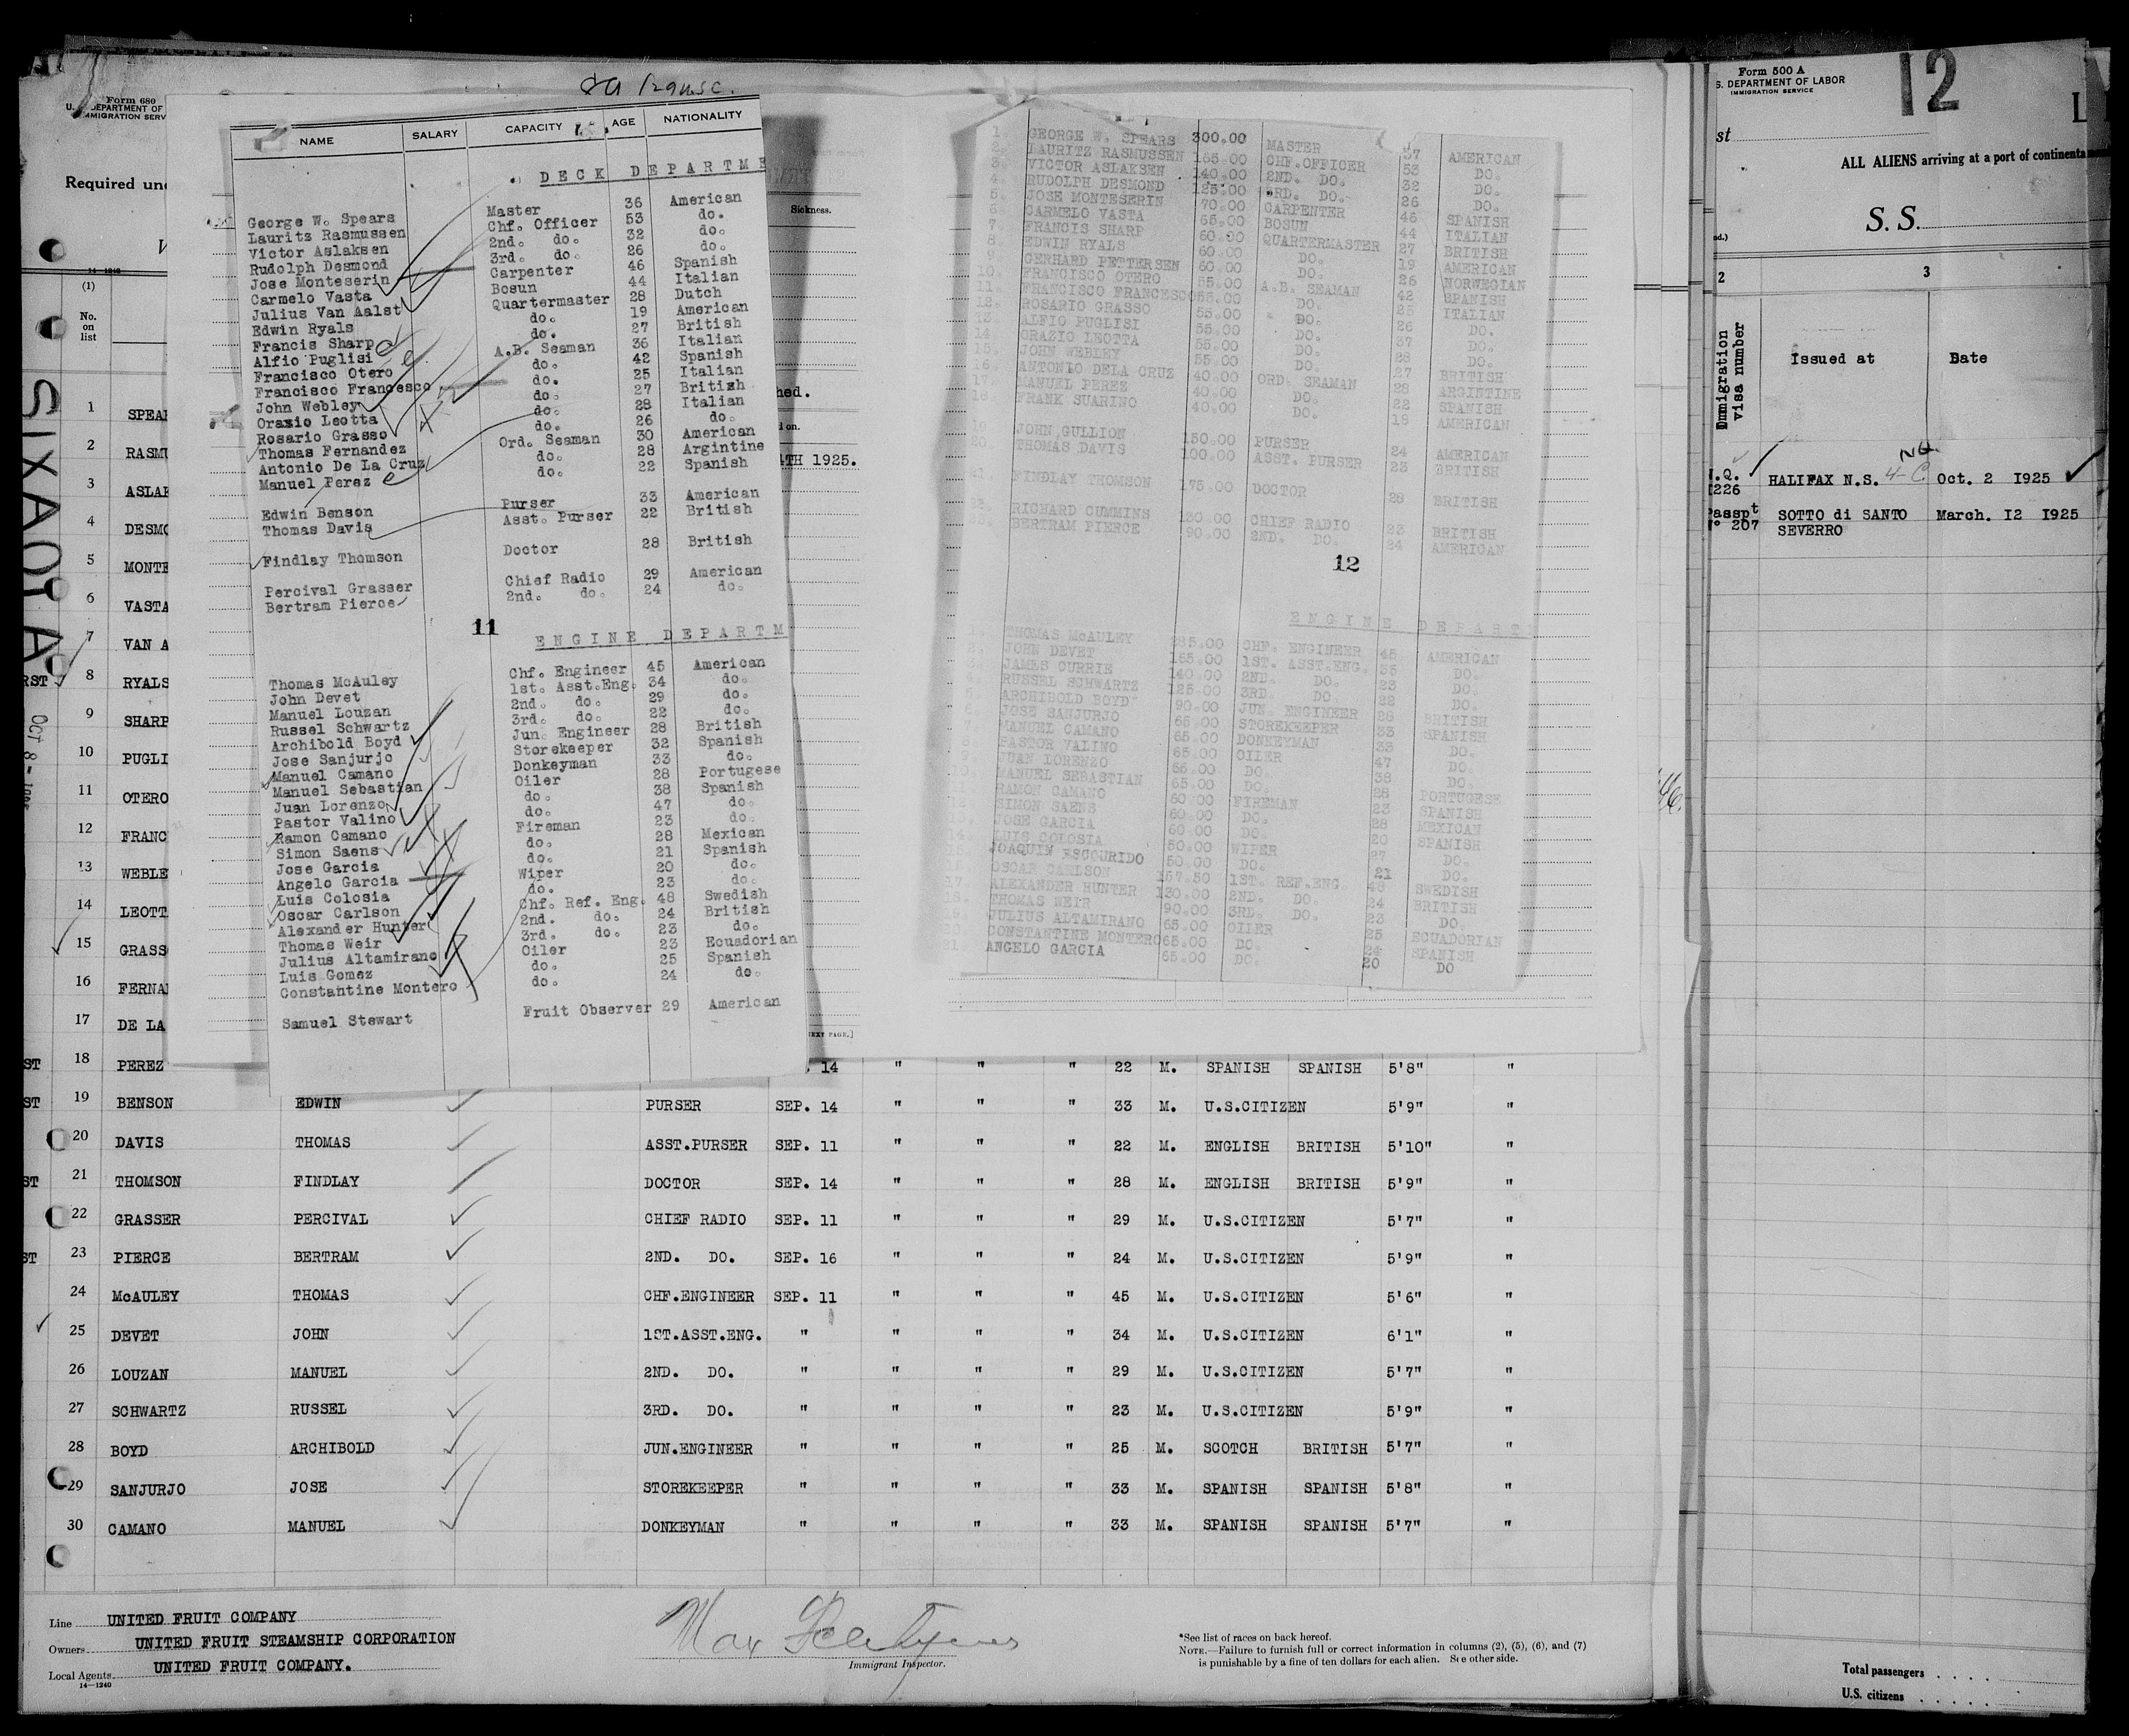 Form 680
U. S. DEPARTMENT OF
IMMIGRATION SERV
Required und
14-1240
(1)
No.
on
list
SIXAOLA
OCT 8-
NAME SALARY CAPACITY AGE NATIONALITY
DECK DEPARTME
George W. Spears Master 36 American
Lauritz Rasmussen Chf. Officer 53 do.
Victor Aslaksen 2nd. do. 32 do.
Rudolph Desmond 3rd. do. 26 do.
Jose Monteserin Carpenter 46 Spanish
Carmelo Vasta Bosun 44 Italian
Julius Van Aalst Quartermaster 28 Dutch
Edwin Ryals do. 19 American
Francis Sharp do. 27 British
Alfio Puglisi A.B. Seaman 36 Italian
Francisco Otero do. 42 Spanish
Francisco Francesco do. 25 Italian
John Webley do. 27 British
Orazio Leotta do. 28 Italian
Rosario Grasso do. 26 do.
Thomas Fernandez Ord. Seaman 30 American
Antonio De La Cruz do. 28 Argintine
Manuel Perez do. 22 Spanish
Edwin Benson Purser 33 American
Thomas Davis Asst. Purser 22 British
Findlay Thomson Doctor 28 British
Percival Grasser Chief Radio 29 American
Bertram Pierce 2nd. do. 24 do.
11
ENGINE DEPARTM
Thomas McAuley Chf. Engineer 45 American
John Devet 1st. Asst.Eng. 34 do.
Manuel Louzan 2nd. do. 29 do.
Russel Schwartz 3rd. do. 22 do.
Archibold Boyd Jun. Engineer 28 British
Jose Sanjurjo Storekeeper 32 Spanish
Manuel Camano Donkeyman 33 do.
Manuel Sebastian Oiler 28 Portugese
Juan Lorenzo do. 38 Spanish
Pastor Valino do. 47 do.
Ramon Camano Fireman 23 do.
Simon Saens do. 28 Mexican
Jose Garcia do. 21 Spanish
Angelo Garcia Wiper 20 do.
Luis Colosia do. 23 do.
Oscar Carlson Chf. Ref. Eng. 48 Swedish
Alexander Hunter 2nd. do. 24 British
Thomas Weir 3rd. do. 23 do.
Julius Altamirano Oiler 23 Ecuadorian
Luis Gomez do. 25 Spanish
Constantine Montero do. 24 do.
Samuel Stewart Fruit Observer 29 American
Sickness.
hed.
d on.
4TH 1925.
EXT PAGE.]
1. GEORGE W. SPEARS 300.00 MASTER 37 AMERICAN
2. LAURITZ RASMUSSEN 185.00 CHF.OFFICER 53 DO.
3. VICTOR ASLAKSEN 140.00 2ND. DO. 32 DO.
4. RUDOLPH DESMOND 125.00 3RD. DO. 26 DO.
5. JOSE MONTESERIN 70.00 CARPENTER 46 SPANISH
6. CARMELO VASTA 65.00 BOSUN 44 ITALIAN
7. FRANCIS SHARP 60.00 QUARTERMASTER 27 BRITISH
8. EDWIN RYALS 60.00 DO. 19 AMERICAN
9. GERHARD PETTERSEN 60.00 DO. 26 NORWEGIAN
10. FRANCISCO OTERO 55.00 A.B. SEAMAN 42 SPANISH
11. FRANCISCO FRANCESCO 55.00 DO. 25 ITALIAN
12. ROSARIO GRASSO 55.00 DO. 26 DO.
13. ALFIO PUGLISI 55.00 DO. 37 DO.
14. ORAZIO LEOTTA 55.00 DO. 28 DO.
15. JOHN WEBLEY 55.00 DO. 27 BRITISH
16. ANTONIO DELA CRUZ 40.00 ORD. SEAMAN 28 ARGINTINE
17. MANUEL PEREZ 40.00 DO. 22 SPANISH
18. FRANK SUARINO 40.00 DO. 18 AMERICAN
19. JOHN GULLION 150.00 PURSER 24 AMERICAN
20. THOMAS DAVIS 100.00 ASST. PURSER 23 BRITISH
21. FINDLAY THOMSON 175.00 DOCTOR 28 BRITISH
RICHARD CUMMINS 130.00 CHIEF RADIO 23 BRITISH
BERTRAM PIERCE 90.00 2ND. DO. 24 AMERICAN
12
ENGINE DEPART
THOMAS McAULEY 285.00 CHF. ENGINEER 45 AMERICAN
JOHN DEVET 165.00 1ST. ASST.ENG. 35 DO.
JAMES CURRIE 140.00 2ND. DO. 23 DO.
RUSSEL SCHWARTZ 125.00 3RD. DO. 22 DO.
ARCHIBOLD BOYD 90.00 JUN. ENGINEER 28 BRITISH
JOSE SANJURJO 65.00 STOREKEEPER 33 SPANISH
MANUEL CAMANO 65.00 DONKEYMAN 33 DO.
PASTOR VALINO 65.00 OILER 47 DO.
JUAN LORENZO 65.00 DO. 38 DO.
MANUEL SEBASTIAN 65.00 DO. 28 PORTUGESE
RAMON CAMANO 60.00 FIREMAN 23 SPANISH
SIMON SAENS 60.00 DO. 28 MEXICAN
JOSE GARCIA 60.00 DO. 20 SPANISH
LUIS COLOSIA 50.00 WIPER 27 DO.
JOAQUIN ESCOURIDO 50.00 DO. 21 DO.
OSCAR CARLSON 157.50 1ST. REF.ENG. 48 SWEDISH
ALEXANDER HUNTER 130.00 2ND. DO. 24 BRITISH
THOMAS WEIR 90.00 3RD. DO. 23 DO.
JULIUS ALTAMIRANO 65.00 OILER 25 ECUADORIAN
CONSTANTINE MONTERO 65.00 DO. 24 SPANISH
ANGELO GARCIA 65.00 DO. 20 DO
1 SPEAR
2 RASMU
3 ASLAK
4 DESMO
5 MONTE
6 VASTA
7 VAN A
RST 8 RYALS
9 SHARP
10 PUGLI
11 OTERO
12 FRANC
13 WEBLE
14 LEOTT
15 GRASS
16 FERNA
17 DE LA
ST 18 PEREZ . 14 " " " 22 M. SPANISH SPANISH 5'8" "
ST 19 BENSON EDWIN PURSER SEP. 14 " " " 33 M. U.S.CITIZEN 5'9" "
20 DAVIS THOMAS ASST.PURSER SEP. 11 " " " 22 M. ENGLISH BRITISH 5'10" "
ST 21 THOMSON FINDLAY DOCTOR SEP. 14 " " " 28 M. ENGLISH BRITISH 5'9" "
22 GRASSER PERCIVAL CHIEF RADIO SEP. 11 " " " 29 M. U.S.CITIZEN 5'7" "
ST 23 PIERCE BERTRAM 2ND. DO. SEP. 16 " " " 24 M. U.S.CITIZEN 5'9" "
24 McAULEY THOMAS CHF.ENGINEER SEP. 11 " " " 45 M. U.S.CITIZEN 5'6" "
25 DEVET JOHN 1ST.ASST.ENG. " " " " 34 M. U.S.CITIZEN 6'1" "
26 LOUZAN MANUEL 2ND. DO. " " " " 29 M. U.S.CITIZEN 5'7" "
27 SCHWARTZ RUSSEL 3RD. DO. " " " " 23 M. U.S.CITIZEN 5'9" "
28 BOYD ARCHIBOLD JUN.ENGINEER " " " " 25 M. SCOTCH BRITISH 5'7" "
29 SANJURJO JOSE STOREKEEPER " " " " 33 M. SPANISH SPANISH 5'8" "
30 CAMANO MANUEL DONKEYMAN " " " " 33 M. SPANISH SPANISH 5'7" "
Line UNITED FRUIT COMPANY
Owners UNITED FRUIT STEAMSHIP CORPORATION
Local Agents UNITED FRUIT COMPANY.
14-1240
Max
Immigrant Inspector.
*See list of races on back hereof.
NOTE.—Failure to furnish full or correct information in columns (2), (5), (6), and (7)
is punishable by a fine of ten dollars for each alien. See other side.
Form 500 A
S. DEPARTMENT OF LABOR
IMMIGRATION SERVICE
12
L
st
ALL ALIENS arriving at a port of continenta
S. S.
nd.)
2 3
Immigration visa number
Issued at Date
N.Q. 1226 HALIFAX N.S. 4-C Oct. 2 1925
Passpt N° 207 SOTTO di SANTO SEVERRO March. I2 I925
Total passengers . . . .
U.S. citizens . . . . .